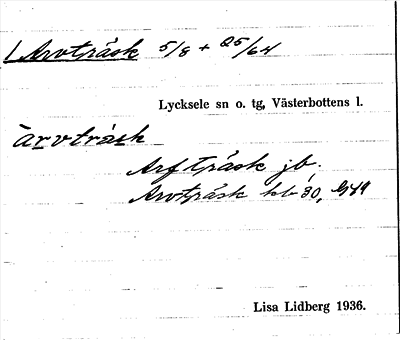 1 Arvträsk 5/8 + 25/64
Lycksele sn o. tg, Västerbottens l.
ārvtràsk
Arfträsk jb.
Arvträsk kb 30,
Lisa Lidberg 1936.